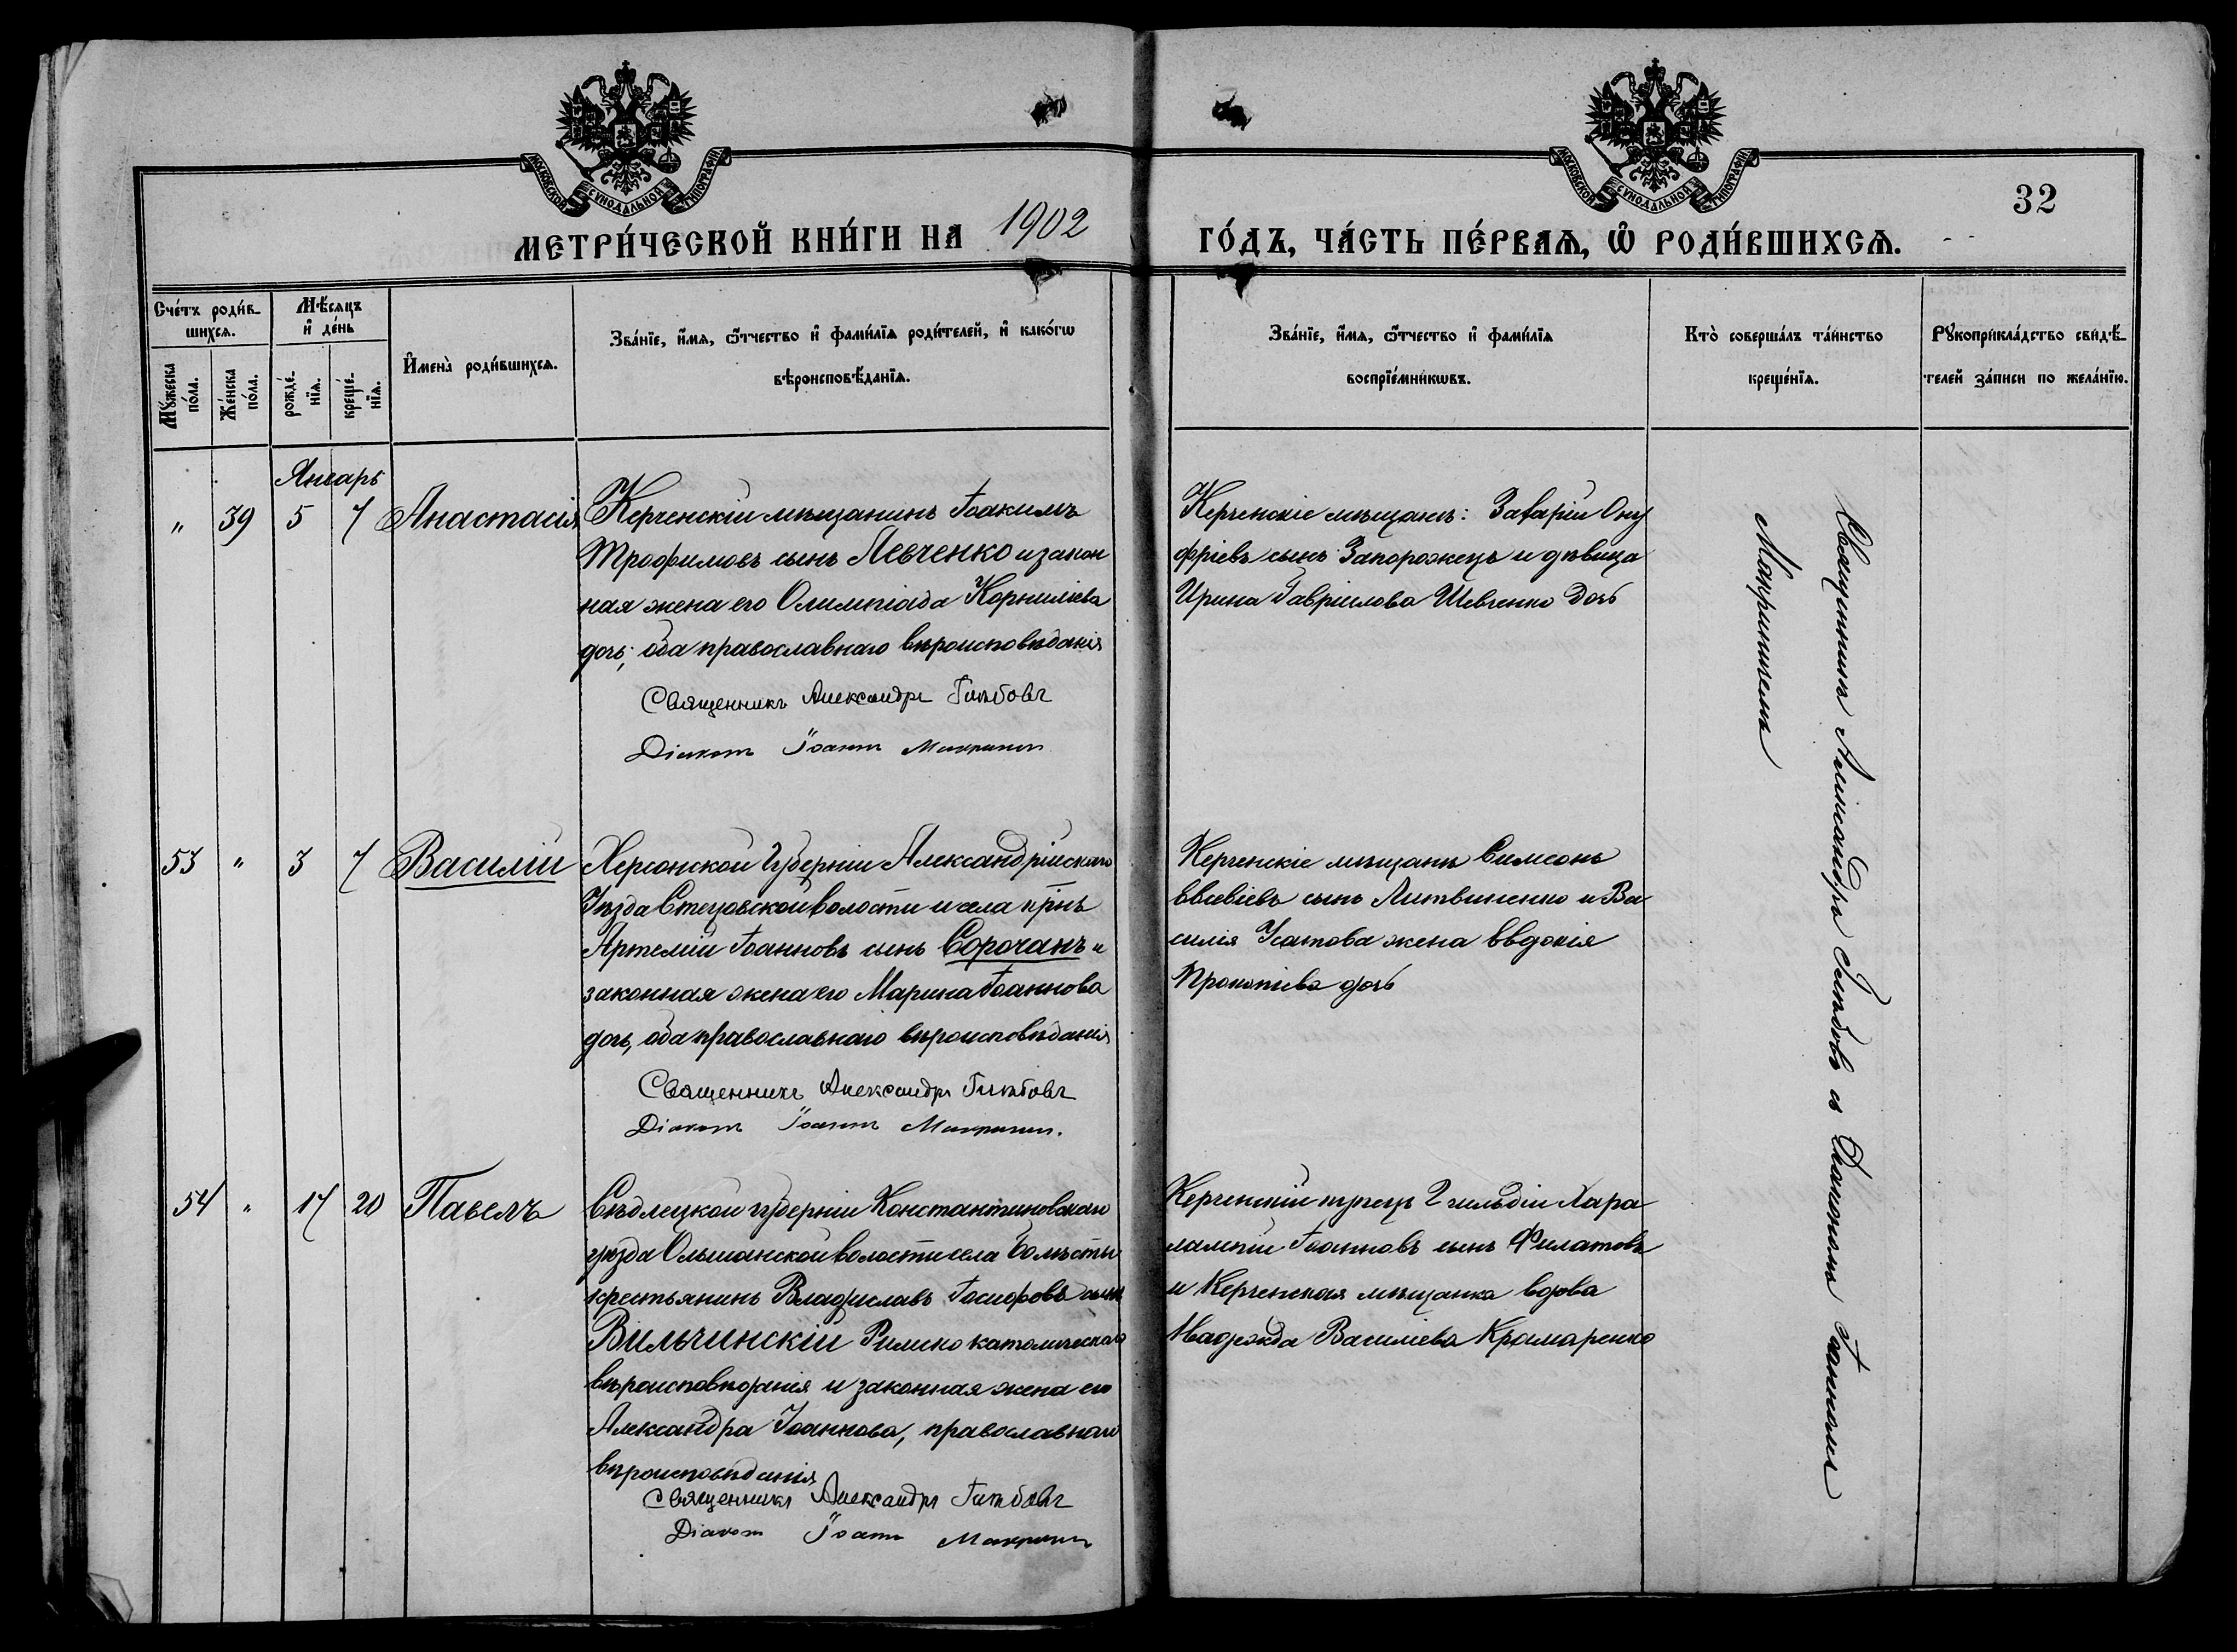 МОСКОВСКОЙ СѴНОДАЛЬНОЙ ТИПОГРАФІИ
МОСКОВСКОЙ СѴНОДАЛЬНОЙ ТИПОГРАФІИ
32
МЕТРИ́ЧЕСКОЙ КНИ́ГИ НА 1902 ГО́ДЪ, ЧА́СТЬ ПЕ́РВАѦ, Ѡ҆ РОДИ́ВШИХСѦ.
Сче́тъ роди́в-
шихсѧ.
Мꙋ́жеска по́ла.
Же́нска по́ла.
Мѣ́сѧцъ
и҆ де́нь
рожде́-
нїѧ.
креще́-
нїѧ.
И҆мена̀ роди́вшихсѧ.
Зва́нїе, и҆́мѧ, ѻ҆́тчество и҆ фами́лїѧ роди́телей, и҆ како́гѡ
вѣроисповѣ́данїѧ.
Зва́нїе, и҆́мѧ, ѻ҆́тчество и҆ фами́лїѧ
воспрїе́мникѡвъ.
Кто̀ соверша́лъ та́инство
креще́нїѧ.
Рꙋкоприкла́дство свидѣ́-
телей за́писи по жела́нїю.
Январь
" 39 5 7 Анастасія
Керченскій мѣщанинъ Іоакимъ
Трофимовъ сынъ Левченко и закон
ная жена его Олимпіада Корниліева
дочь; оба православнаго вѣроисповѣданія
Священникъ Александръ Глѣбовъ
Діаконъ Іоаннъ Макринин
Керченскіе мѣщане: Захарій Ону
фріевъ сынъ Запорожецъ и дѣвица
Ирина Гавріилова Шевченко дочь
53 " 3 7 Василій
Херсонской губерніи Александрійскаго
Уѣзда Стецовской волости и села крнъ
Артемій Іоанновъ сынъ Сорочанъ и
законная жена его Марина Іоаннова
дочь, оба православнаго вѣроисповѣданія
Священникъ Александръ Глѣбовъ
Діаконъ Іоаннъ Макринин.
Керченскіе мѣщане Симеонъ
Евсевіевъ сынъ Литвиненко и Ва
силія Усатова жена Евдокія
Прокопіева дочь
54 " 17 20 Павелъ
Сѣдлецкой губерніи Константиновскаго
уѣзда Ольшанской волости села
крестьянинъ Владиславъ Іосифовъ сынъ
Вильчинскій Римско католическаго
вѣроисповѣданія и законная жена его
Александра Іоаннова, православнаго
вѣроисповѣданія
Священникъ Александръ Глѣбовъ
Діаконъ Іоаннъ Макринин
Керченскій купецъ 2 гильдіи Хара
лампій Іоанновъ сынъ Филатовъ
и Керченская мѣщанка вдова
Надежда Василіева Крамаренко
Священникъ Александръ Глѣбовъ съ Діакономъ Іоанномъ
Макрининемъ